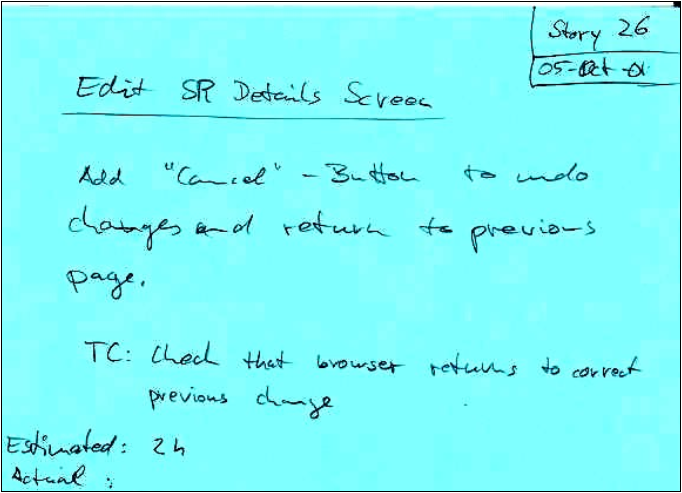 Story 26
05-Oct-01
Edit SR Details Screen
Add "Cancel" - Button to undo
changes and return to previous
page.
TC: Check that browser returns to correct
previous change
Estimated: 2h
Actual :